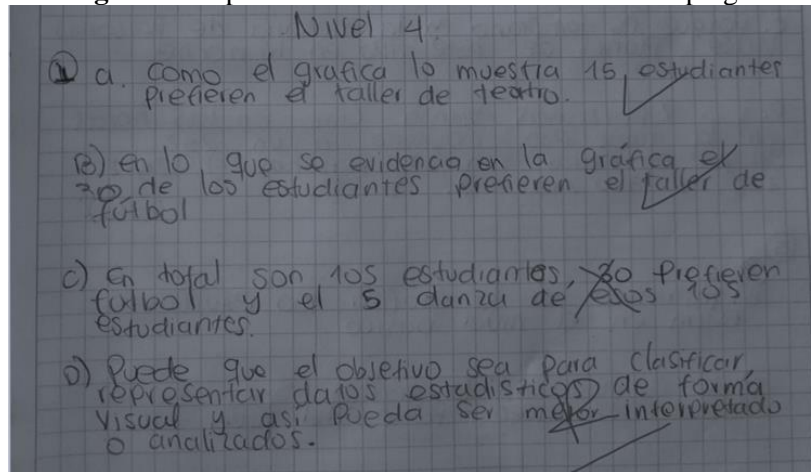 Nivel 4.
① a. como el grafica lo muestra 15 estudiantes
prefieren el taller de teatro.
B) en lo que se evidencia en la gráfica el
30 de los estudiantes prefieren el taller de
fútbol
c) En total son 105 estudiantes, 30 Prefieren
futbol y el 5 danza de esos 105
estudiantes.
D) Puede que el objetivo sea para clasificar,
representar datos estadisticos de forma
visual y asi pueda ser mejor interpretado
o analizados.